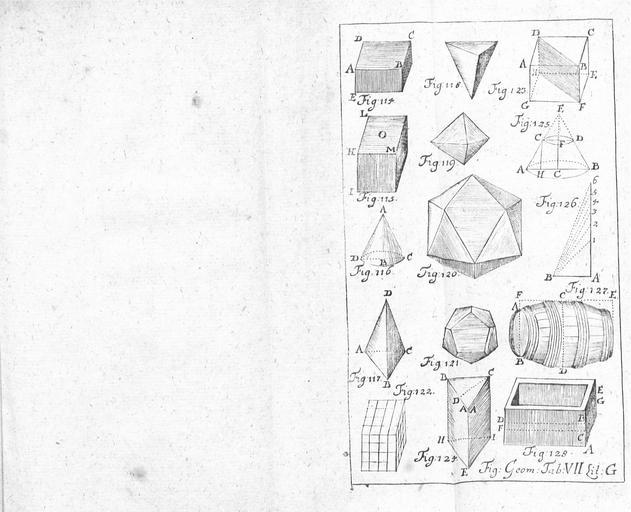 D C
A B
E Fig: 114
Fig: 118
D C
A B
H E
G F
Fig: 123
L
O
H M
I
Fig: 115
Fig: 119
Fig: 125
E
C D
F
A H C B
A
D B C
Fig: 116
Fig: 120
Fig: 126
6
5
4
3
2
1
B A
D
A C
B
Fig: 117
Fig: 121
Fig: 127
F C E
A
B
D
Fig: 122
B C
D
A A
H I
E
Fig: 124
E
G
D B
F C
A
Fig: 128
Fig: Geom: Tab: VII Lit: G